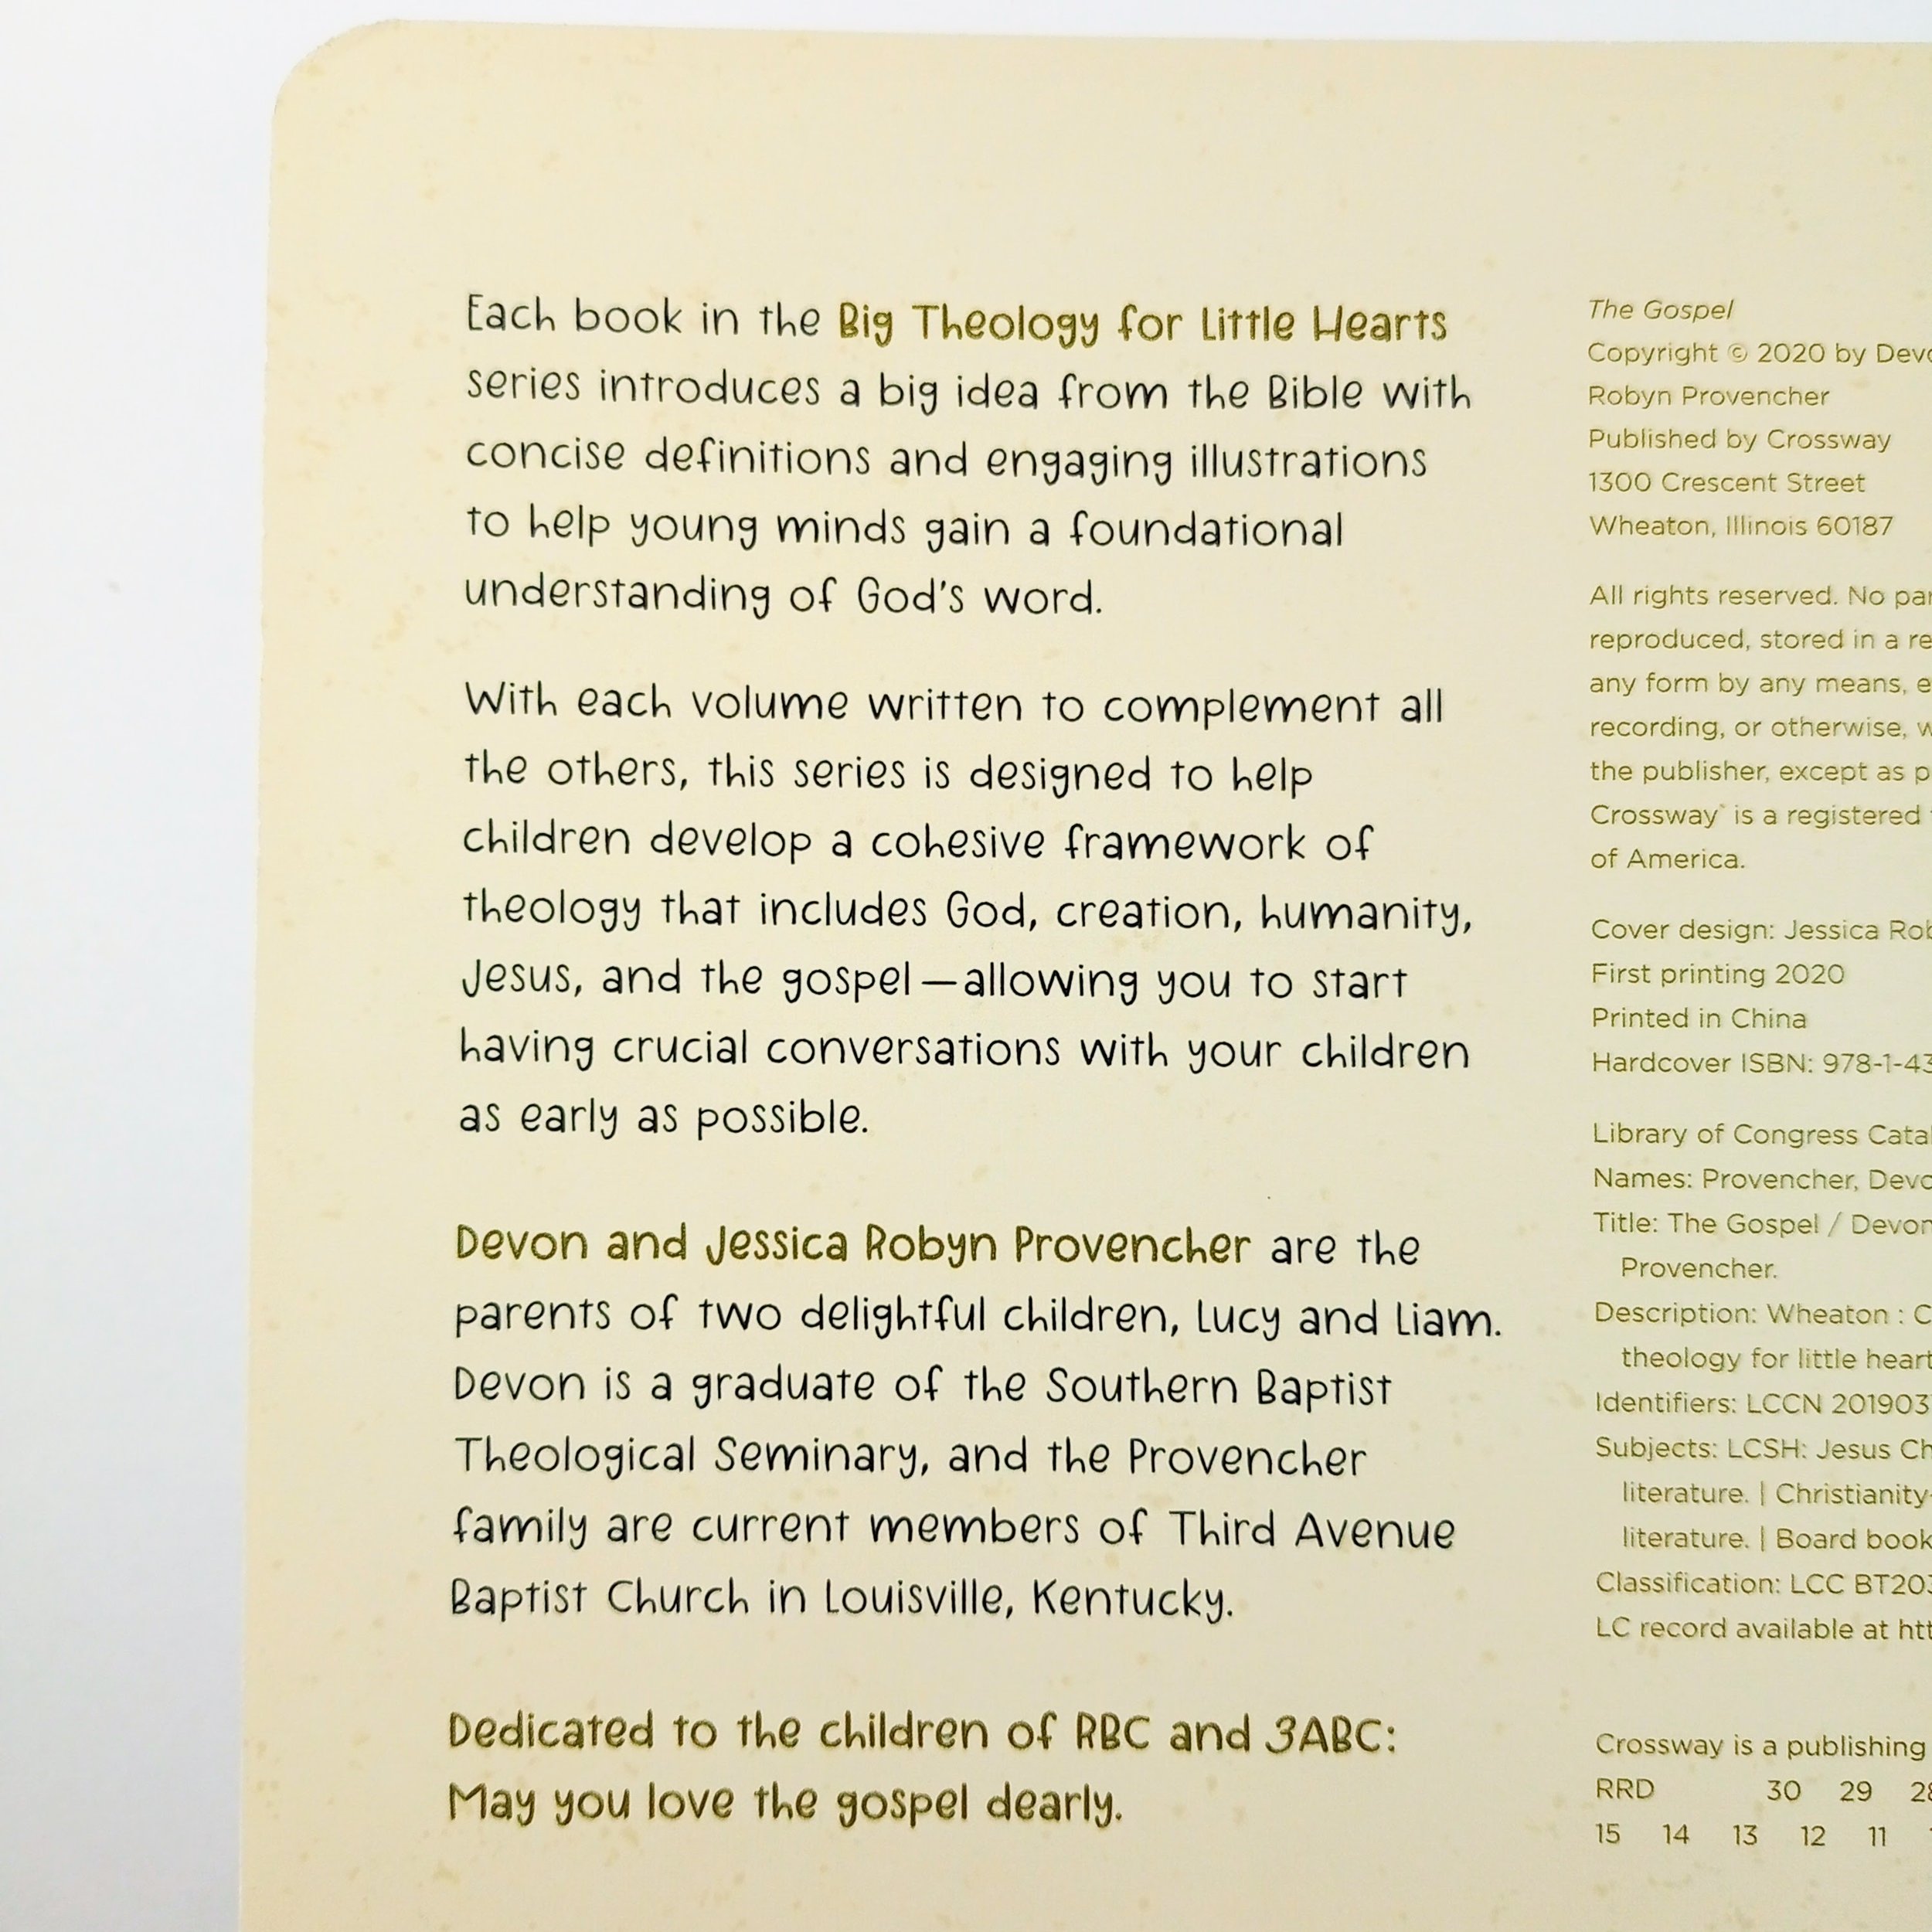 Each book in the Big Theology for Little Hearts
series introduces a big idea from the Bible with
concise definitions and engaging illustrations
to help young minds gain a foundational
understanding of God's word.
With each volume written to complement all
the others, this series is designed to help
children develop a cohesive framework of
theology that includes God, creation, humanity,
Jesus, and the gospel—allowing you to start
having crucial conversations with your children
as early as possible.
Devon and Jessica Robyn Provencher are the
parents of two delightful children, Lucy and Liam.
Devon is a graduate of the Southern Baptist
Theological Seminary, and the Provencher
family are current members of Third Avenue
Baptist Church in Louisville, Kentucky.
Dedicated to the children of RBC and 3ABC:
May you love the gospel dearly.
The Gospel
Copyright © 2020 by
Robyn Provencher
Published by Crossway
1300 Crescent Street
Wheaton, Illinois 60187
All rights reserved. No
reproduced, stored in a
any form by any means,
recording, or otherwise,
the publisher, except as
Crossway® is a registered
of America.
Cover design: Jessica
First printing 2020
Printed in China
Hardcover ISBN: 978-1-43
Library of Congress
Names: Provencher,
Title: The Gospel / Devon
Provencher.
Description: Wheaton :
theology for little
Identifiers: LCCN 201903
Subjects: LCSH: Jesus
literature. | Christianity
literature. | Board
Classification: LCC BT203
LC record available at
Crossway is a publishing
RRD 30 29 28
15 14 13 12 11